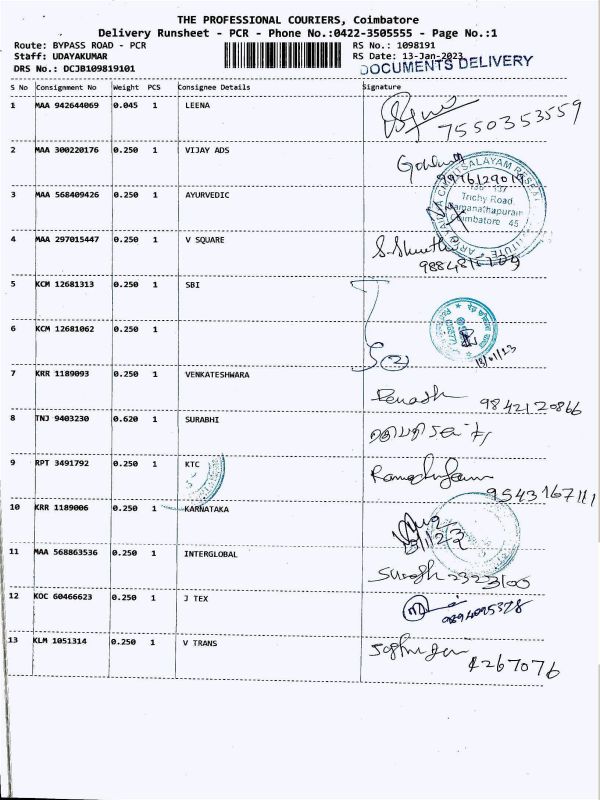 THE PROFESSIONAL COURIERS, Coimbatore
Delivery Runsheet - PCR - Phone No.:0422-3505555 - Page No.:1
Route: BYPASS ROAD - PCR RS No.: 1098191
Staff: UDAYAKUMAR RS Date: 13-Jan-2023
DRS No.: DCJB109819101 DOCUMENTS DELIVERY
S No Consignment No Weight PCS Consignee Details Signature
1 MAA 942644069 0.045 1 LEENA
7550353559
2 MAA 300220176 0.250 1 VIJAY ADS
3 MAA 568409426 0.250 1 AYURVEDIC
Trichy Road,
Ramanathapuram
Coimbatore 45
4 MAA 297015447 0.250 1 V SQUARE
5 KCM 12681313 0.250 1 SBI
6 KCM 12681062 0.250 1
13/01/23
7 KRR 1189093 0.250 1 VENKATESHWARA
9842120866
8 TNJ 9403230 0.620 1 SURABHI
9 RPT 3491792 0.250 1 KTC
9543167111
10 KRR 1189006 0.250 1 KARNATAKA
11 MAA 568863536 0.250 1 INTERGLOBAL
2323100
12 KOC 60466623 0.250 1 J TEX
9894095328
13 KLM 1051314 0.250 1 V TRANS
4267076